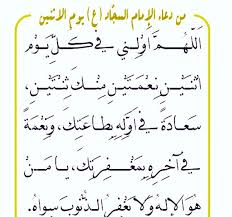 من دعاء الإمام السجّاد (ع) يوم الاثنين
اَللّهُمَّ اَوْلِني في كُلِّ يَوْمِ
اثْنَيْنِ نِعْمَتَيْنِ مِنْكَ ثِنْتَيْنِ،
سَعادَةً في اَوَّلِهِ بِطاعَتِكَ، وَنِعْمَةً
في آخِرِهِ بِمَغْفِرَتِكَ، يا مَنْ
هُوَ الإِلهُ وَلا يَغْفِرُ الذُّنُوبَ سِواهُ.